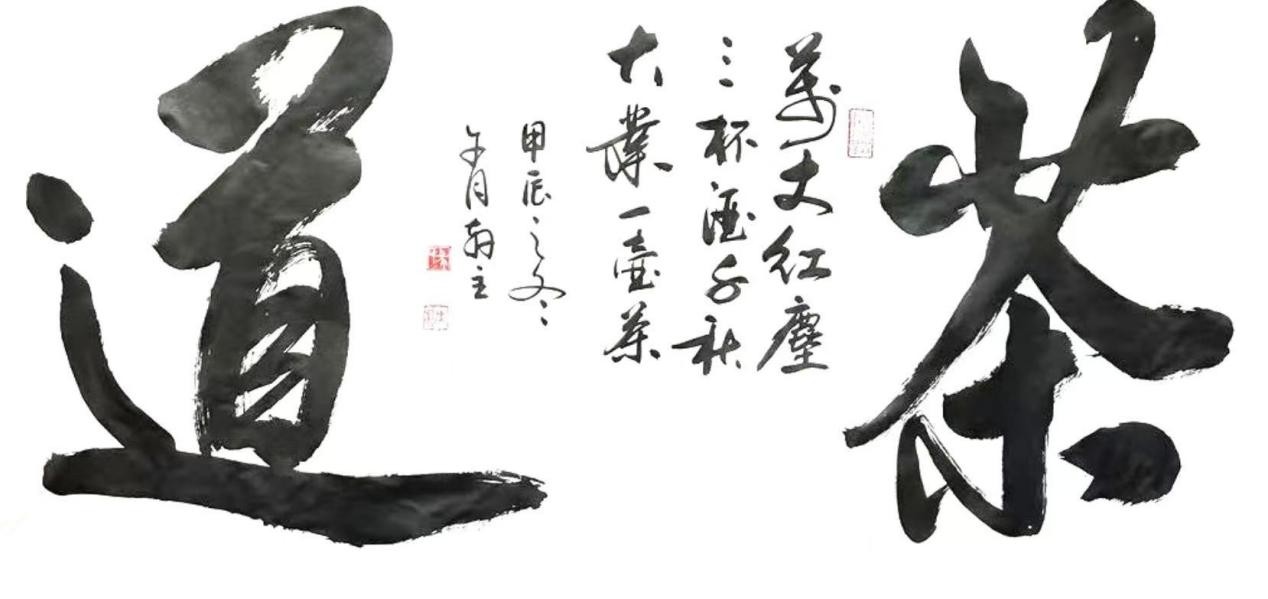 茶
萬丈紅塵
三杯酒千秋
大業一壺茶
甲辰之冬
午月主
道